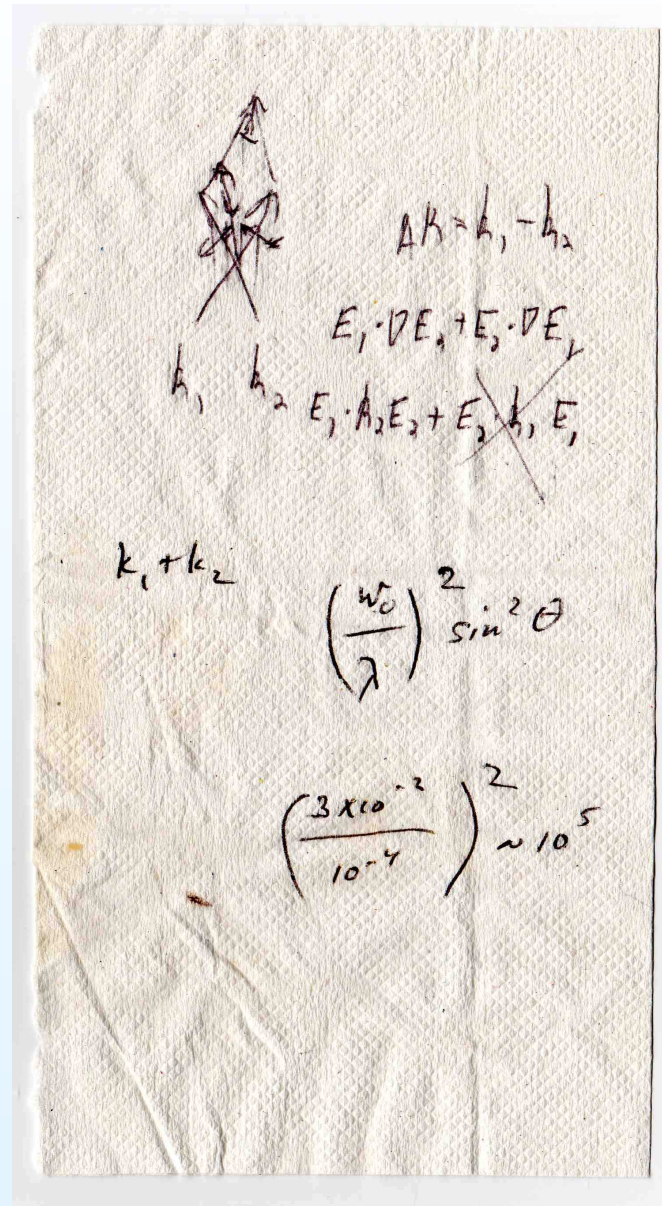 Δk = k₁ - k₂
E₁·∇E₂ + E₂·∇E₁
k₁ k₂ E₁·k₂E₂ + E₂·k₁E₁
k₁ + k₂
(w₀/λ)² sin² θ
(3 x10⁻²/10⁻⁴)² ~ 10⁵